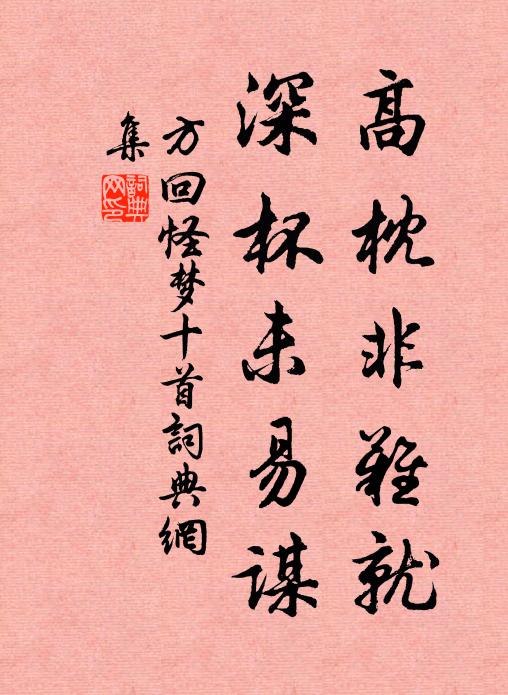 高枕非難就
深杯未易謀
方回怪梦十首詞典網
集
詞典
网印